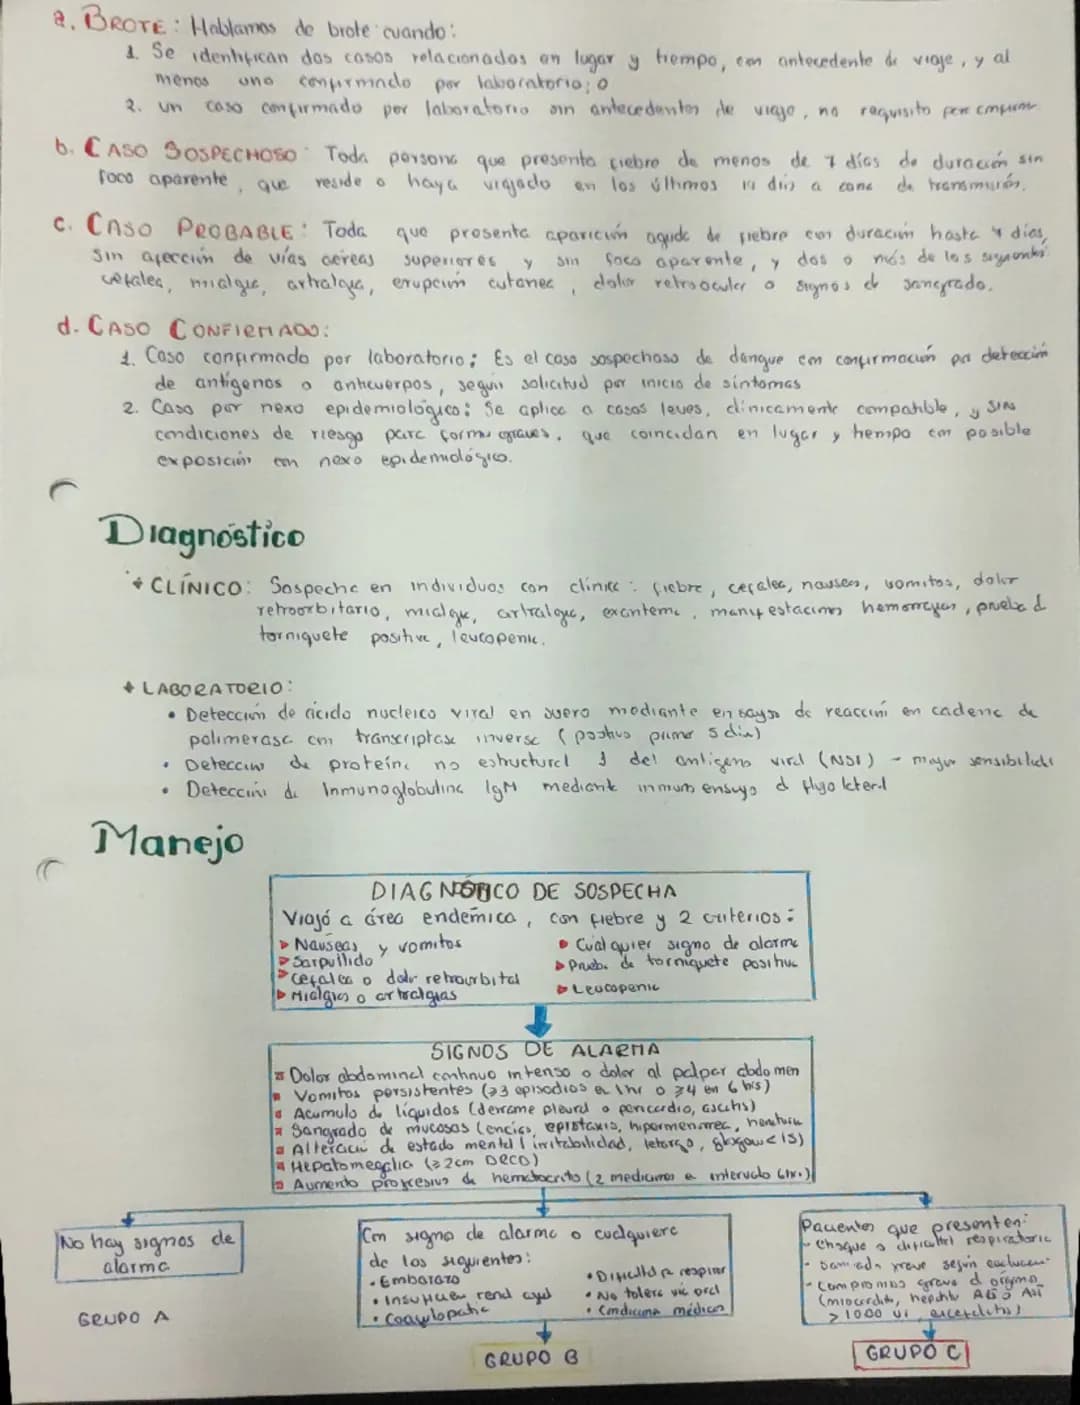 a. BROTE: Hablamos de brote cuando:
1. Se identifican dos casos relacionados en lugar y tiempo, con antecedente de viaje, y al
menos uno confirmado por laboratorio; o
2. un caso confirmado por laboratorio sin antecedentes de viaje, no requisito para
b. CASO SOSPECHOSO: Toda persona que presenta fiebre de menos de 7 días de duración sin
foco aparente, que reside o haya viajado en los últimos 14 días a zona de transmisión.
c. CASO PROBABLE: Toda que presenta aparición aguda de fiebre con duración hasta 7 días,
Sin afección de vías aéreas superiores y sin foco aparente, y dos o más de los siguientes:
cefalea, mialgia, artralgia, erupción cutanea, dolor retroocular o signos de sangrado.
d. CASO CONFIRMADO:
1. Caso confirmado por laboratorio: Es el caso sospechoso de dengue con confirmación por detección
de antígenos o anticuerpos, según solicitud por inicio de síntomas
2. Caso por nexo epidemiológico: Se aplica a casos leves, clínicamente compatible, y sin
condiciones de riesgo para formas graves, que coincidan en lugar y tiempo con posible
exposición con nexo epidemiológico.
Diagnóstico
+ CLÍNICO: Sospecha en individuos con clínica: fiebre, cefalea, nauseas, vomitos, dolor
retroorbitario, mialgia, artralgia, exantema, manifestaciones hemorragias, prueba d
torniquete positiva, leucopenia.
+ LABORATORIO:
• Detección de ácido nucleico viral en suero mediante ensayo de reacción en cadena de
polimerasa con transcriptasa inversa (positivo primer 5 días)
• Detección de proteína no estructural 1 del antígeno viral (NS1) - mayor sensibilidad
• Detección de Inmunoglobulina IgM mediante inmuno ensayo d flujo lateral
Manejo
DIAGNÓSTICO DE SOSPECHA
Viajó a área endémica, con fiebre y 2 criterios:
▶ Nauseas y vomitos
▶ Sarpullido
▶ Cefalea o dolor retroorbital
▶ Mialgias o artralgias
▶ Cualquier signo de alarma
▶ Prueba de torniquete positiva
▶ Leucopenia
SIGNOS DE ALARMA
Dolor abdominal continuo intenso o dolor al palpar abdomen
Vomitos persistentes (≥3 episodios en 1hr o ≥4 en 6 hrs)
Acumulo de líquidos (derrame pleural o pericardio, ascitis)
Sangrado de mucosas (encías, epistaxis, hipermenorrea, hematuria
Alteración de estado mental (irritabilidad, letargo, glasgow < 15)
Hepatomegalia (≥2cm DBCD)
Aumento progresivo de hematocrito (2 mediciones a intervalo 6hr.)
No hay signos de
alarma
GRUPO A
Con signo de alarma o cualquiera
de los siguientes:
• Embarazo
• Insuficien renal agud
• Coagulopatía
• Dificultad p respirar
• No tolera vía oral
• Condiciona médicas
GRUPO B
Pacientes que presenten:
- choque o dificultad respiratoria
- Sangrado grave según evaluación
- Compromiso grave d órgano
(miocarditis, hepatitis AST o ALT
>1000 UI, encefalitis)
GRUPO C